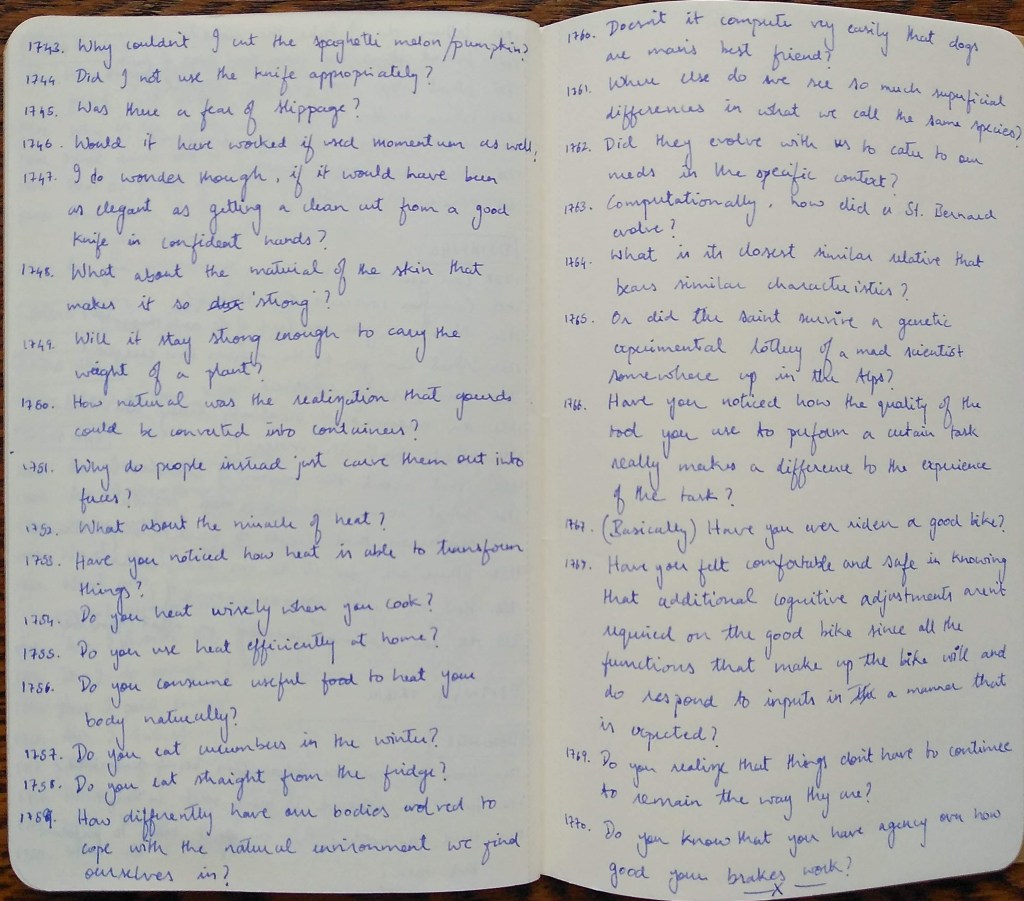 1743. Why couldn't I cut the spaghetti melon/pumpkin?
1744. Did I not use the knife appropriately?
1745. Was there a fear of slippage?
1746. Would it have worked if used momentum as well?
1747. I do wonder though, if it would have been
as elegant as getting a clean cut from a good
knife in confident hands?
1748. What about the material of the skin that
makes it so 'strong'?
1749. Will it stay strong enough to carry the
weight of a plant?
1750. How natural was the realization that gourds
could be converted into containers?
1751. Why do people instead just carve them out into
faces?
1752. What about the miracle of heat?
1753. Have you noticed how heat is able to transform
things?
1754. Do you heat wisely when you cook?
1755. Do you use heat efficiently at home?
1756. Do you consume useful food to heat your
body naturally?
1757. Do you eat cucumbers in the winter?
1758. Do you eat straight from the fridge?
1759. How differently have our bodies evolved to
cope with the natural environment we find
ourselves in?
1760. Doesn't it compute very easily that dogs
are man's best friend?
1761. Where else do we see so much superficial
differences in what we call the same species?
1762. Did they evolve with us to cater to our
needs in the specific context?
1763. Computationally, how did a St. Bernard
evolve?
1764. What is its closest similar relative that
bears similar characteristics?
1765. Or did the saint survive a genetic
experimental lottery of a mad scientist
somewhere up in the Alps?
1766. Have you noticed how the quality of the
tool you use to perform a certain task
really makes a difference to the experience
of the task?
1767. (Basically) Have you ever riden a good bike?
1768. Have you felt comfortable and safe in knowing
that additional cognitive adjustments aren't
required on the good bike since all the
functions that make up the bike will and
do respond to inputs in a manner that
is expected?
1769. Do you realize that things don't have to continue
to remain the way they are?
1770. Do you know that you have agency over how
good your brakes work?
x